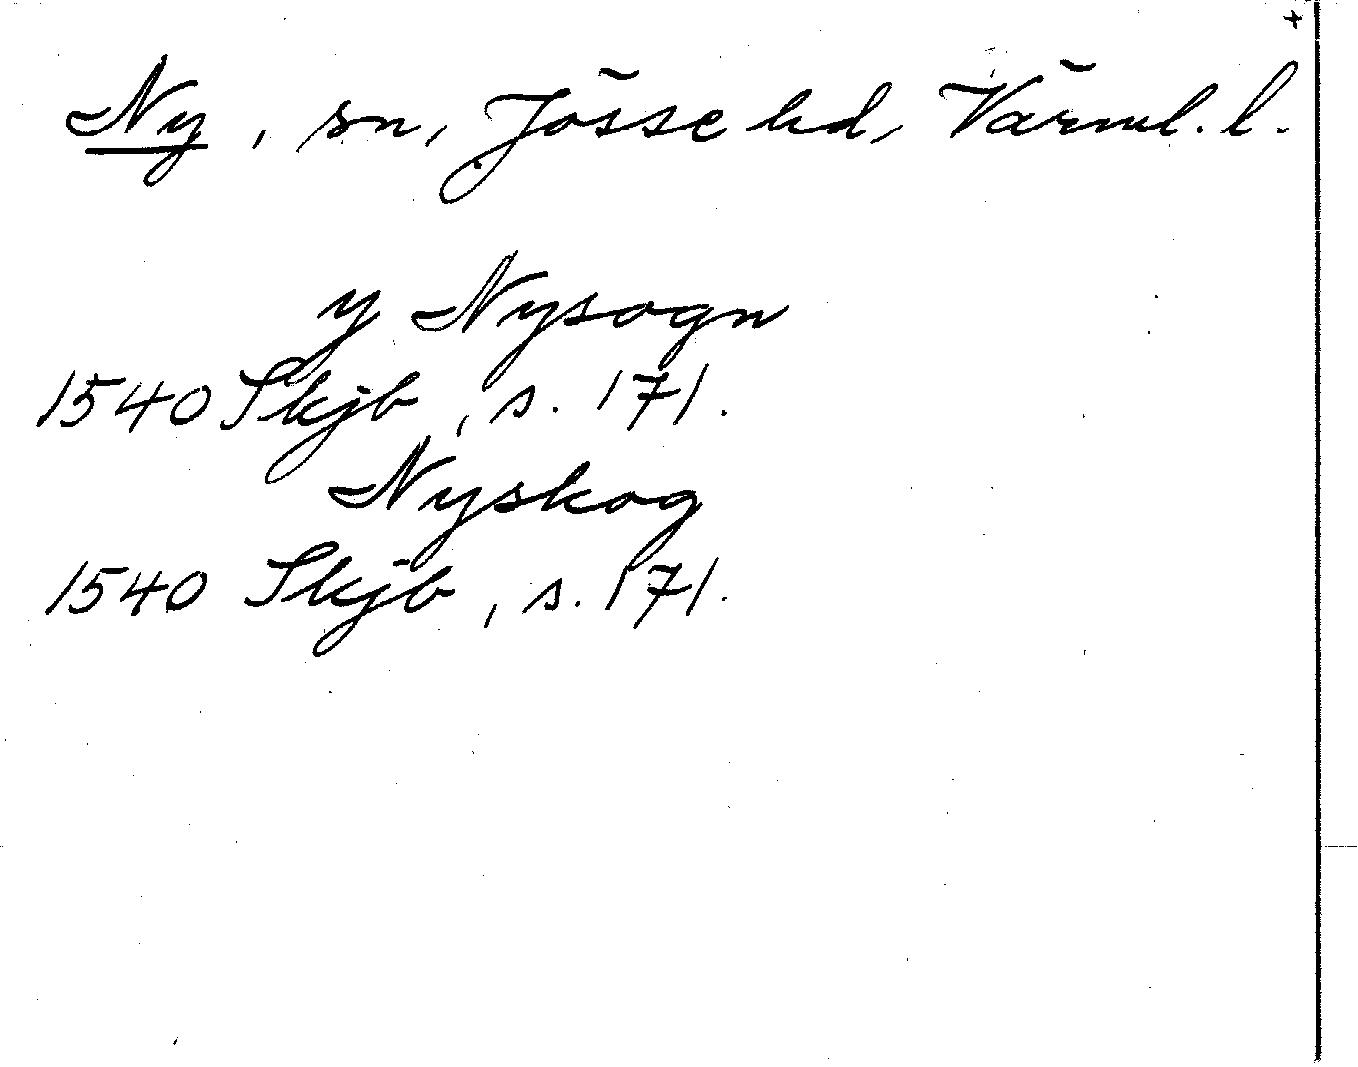 Ny, sn, Jösse hd, Värml. l.
y Nysogn
1540 Skjb, s. 171.
Nyskog
1540 Skjb, s. 171.